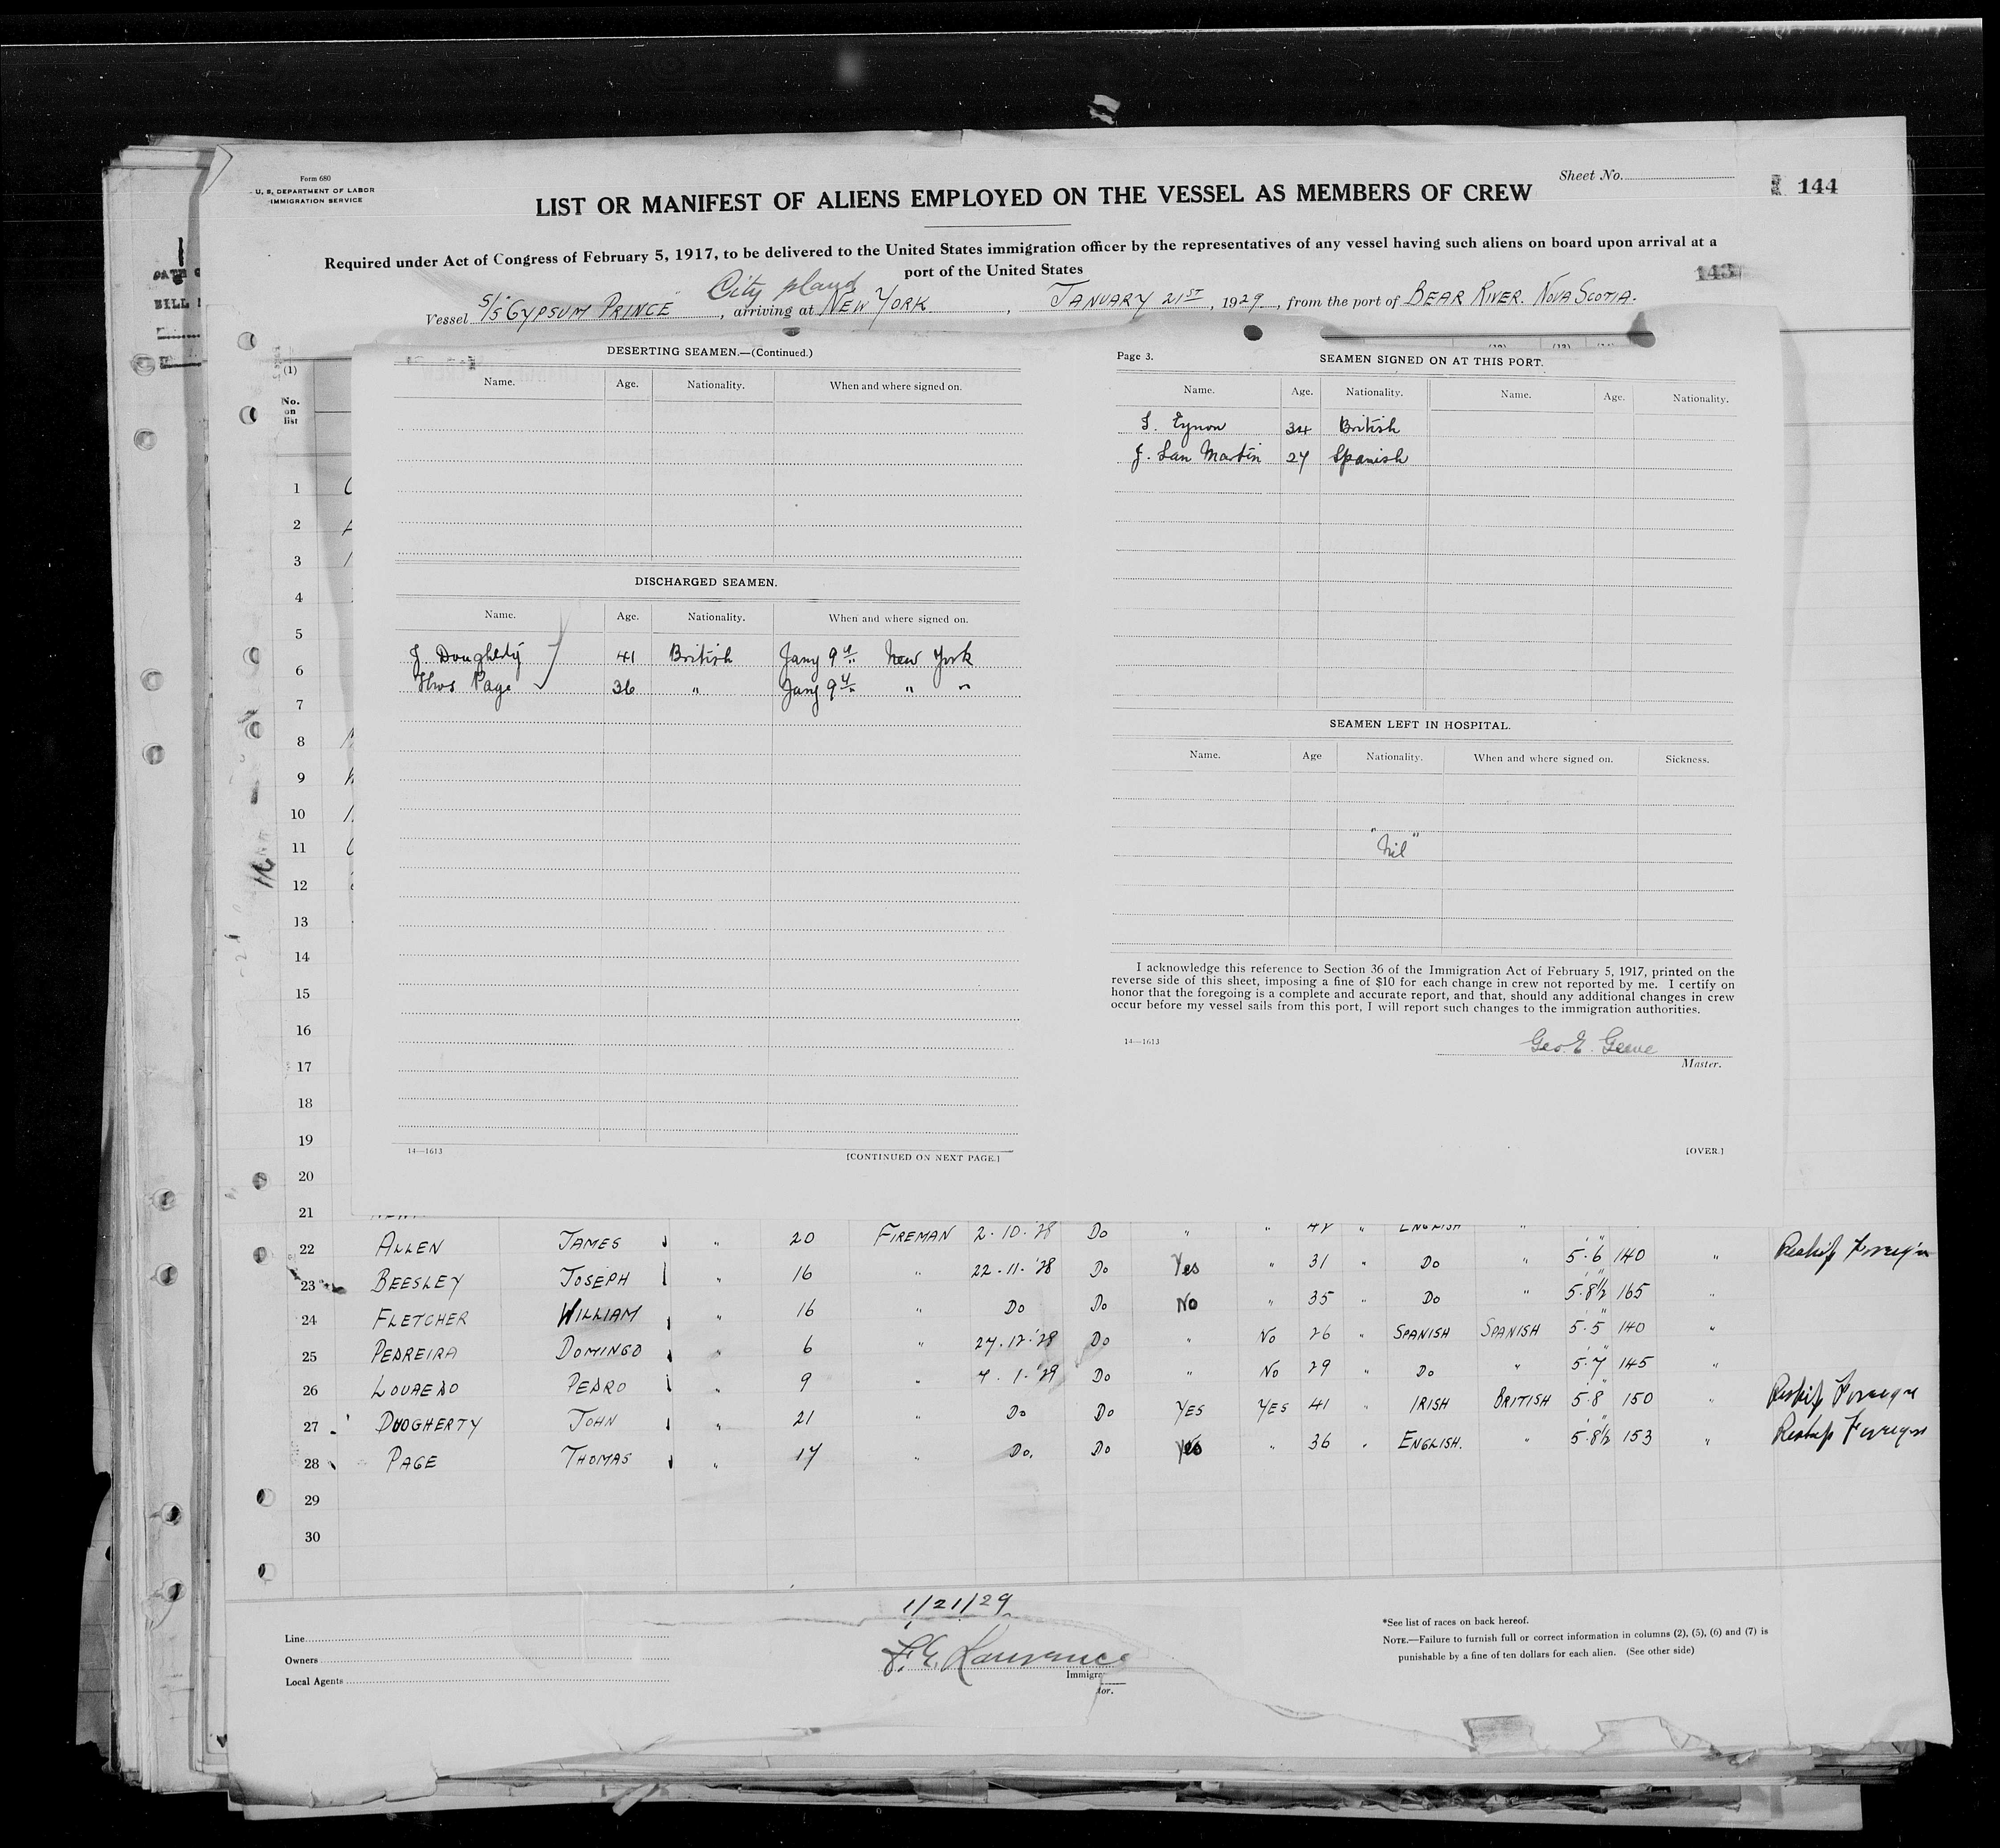 Form 680
U. S. DEPARTMENT OF LABOR
IMMIGRATION SERVICE
Sheet No.
144
LIST OR MANIFEST OF ALIENS EMPLOYED ON THE VESSEL AS MEMBERS OF CREW
Required under Act of Congress of February 5, 1917, to be delivered to the United States immigration officer by the representatives of any vessel having such aliens on board upon arrival at a
port of the United States
143
City
Vessel S/S GYPSUM PRINCE, arriving at NEW YORK, JANUARY 21ST, 1929, from the port of BEAR RIVER. NOVA SCOTIA.
BILL
(1)
No. on list
DESERTING SEAMEN.—(Continued.)
Name. Age. Nationality. When and where signed on.
DISCHARGED SEAMEN.
Name. Age. Nationality. When and where signed on.
J. Dougherty 41 British Jany 9th New York
Thos Page 36 " Jany 9th " "
14—1613 [CONTINUED ON NEXT PAGE.]
Page 3. SEAMEN SIGNED ON AT THIS PORT.
Name. Age. Nationality. Name. Age. Nationality.
Eynon 34 British
J. San Martin 27 Spanish
SEAMEN LEFT IN HOSPITAL.
Name. Age Nationality. When and where signed on. Sickness.
"Nil"
I acknowledge this reference to Section 36 of the Immigration Act of February 5, 1917, printed on the
reverse side of this sheet, imposing a fine of $10 for each change in crew not reported by me. I certify on
honor that the foregoing is a complete and accurate report, and that, should any additional changes in crew
occur before my vessel sails from this port, I will report such changes to the immigration authorities.
14—1613
Geo. E.
Master.
[OVER.]
1
2
3
4
5
6
7
8
9
10
11
12
13
14
15
16
17
18
19
20
21
22 ALLEN JAMES " 20 FIREMAN 2.10.'28 Do " " 42 " ENGLISH "
23 BEESLEY JOSEPH " 16 " 22.11.'28 Do Yes " 31 " Do " 5.6 140 " Reship Foreign
24 FLETCHER WILLIAM " 16 " Do Do No " 35 " Do " 5.8½ 165 "
25 PEDREIRA DOMINGO " 6 " 27.12.'28 Do " No 26 " SPANISH SPANISH 5.5 140 "
26 PEDRO " 9 " 7.1.'29 Do " No 29 " Do " 5.7 145 "
27 DOUGHERTY JOHN " 21 " Do Do YES YES 41 " IRISH BRITISH 5.8 150 " Reship Foreign
28 PAGE THOMAS " 17 " Do. Do Yes " 36 " ENGLISH. " 5.8½ 153 " Reship Foreign
29
30
1/21/29
Line
Owners
Local Agents
Immigra
tor.
*See list of races on back hereof.
NOTE.—Failure to furnish full or correct information in columns (2), (5), (6) and (7) is
punishable by a fine of ten dollars for each alien. (See other side)